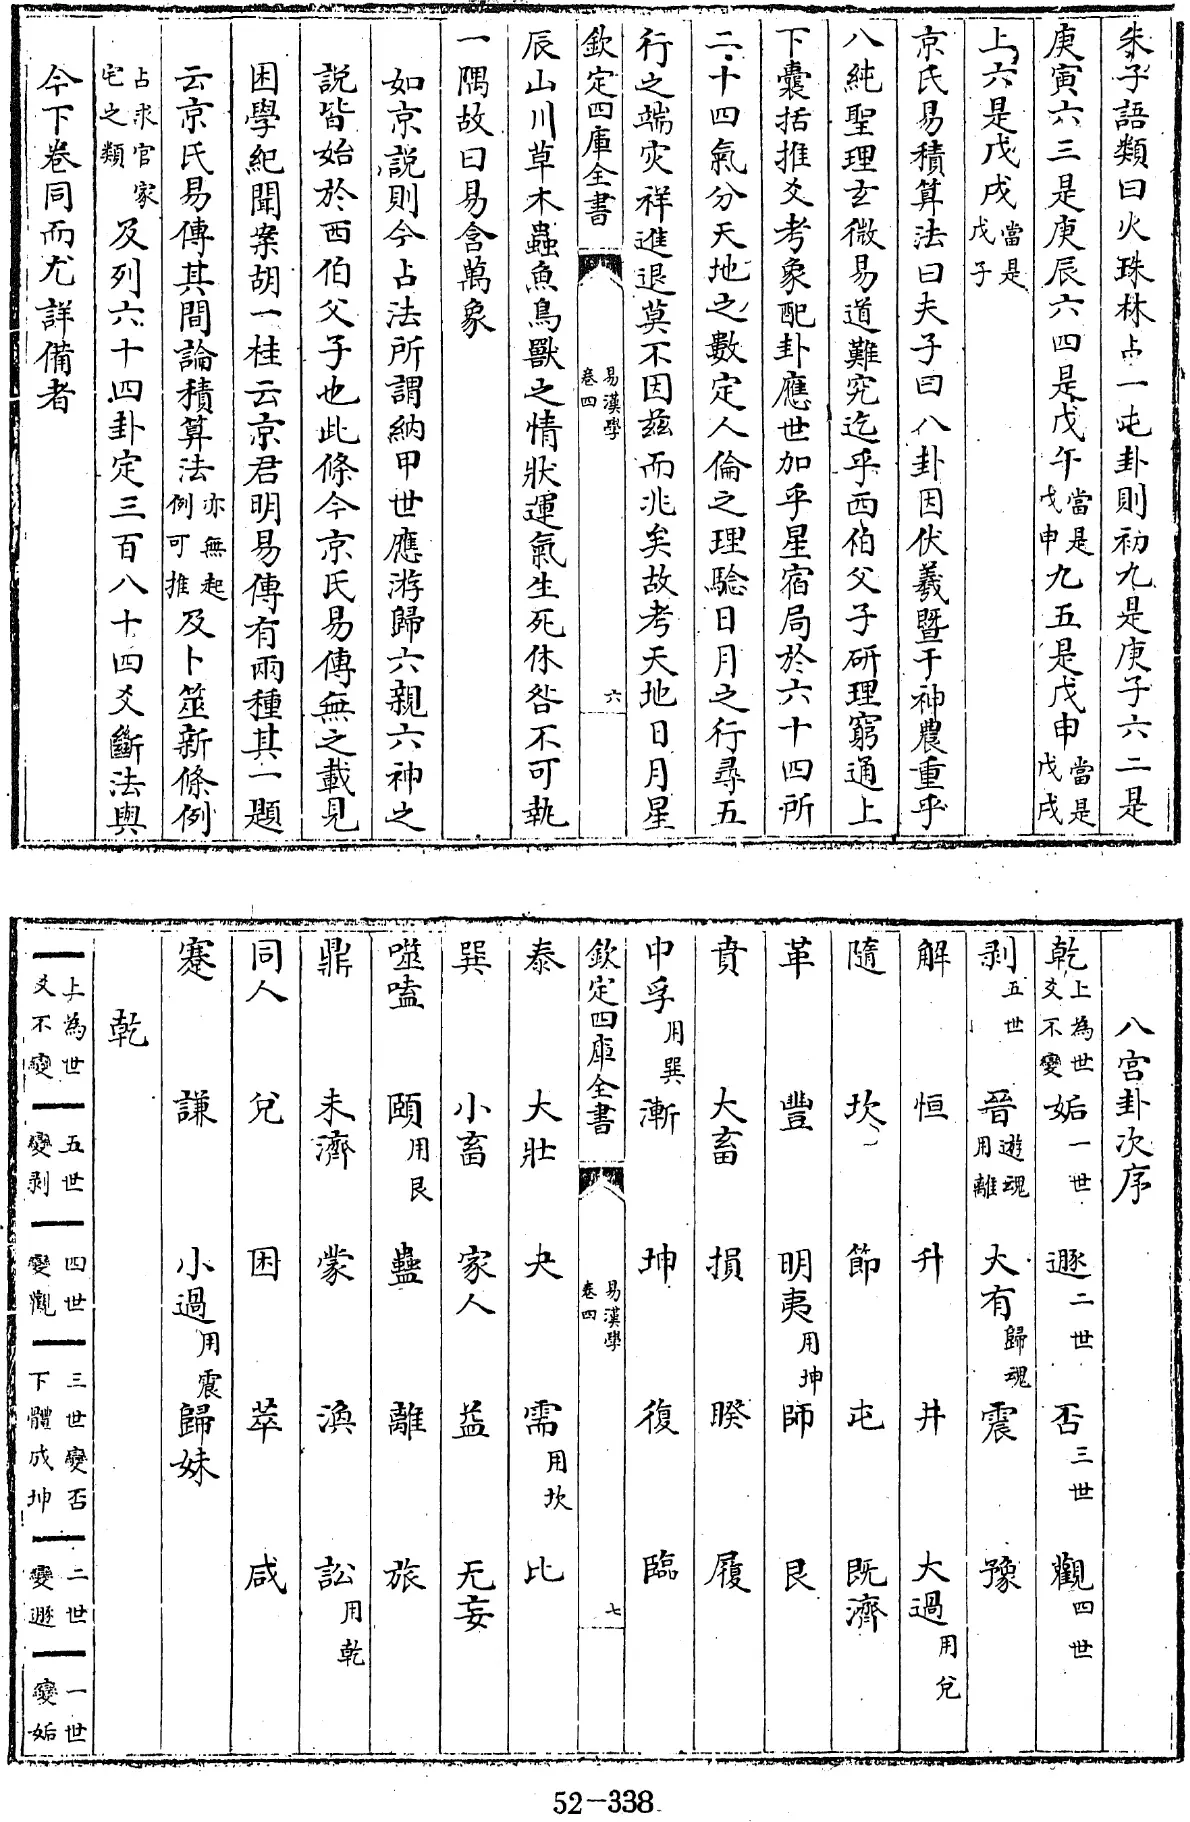 朱子語類曰火珠林占一屯卦則初九是庚子六二是
庚寅六三是庚辰六四是戊午當是戊申九五是戊申當是戊戌
上六是戊戌當是戊子
京氏易積算法曰夫子曰八卦因伏羲暨于神農重乎
八純聖理玄微易道難究迄乎西伯父子研理窮通上
下囊括推爻考象配卦應世加乎星宿局於六十四所
二十四氣分天地之數定人倫之理驗日月之行尋五
行之端灾祥進退莫不因兹而兆矣故考天地日月星
欽定四庫全書
易漢學
卷四
六
辰山川草木蟲魚鳥獸之情狀運氣生死休咎不可執
一隅故曰易含萬象
如京說則今占法所謂納甲世應游歸六親六神之
說皆始於西伯父子也此條今京氏易傳無之載見
困學紀聞案胡一桂云京君明易傳有兩種其一題
云京氏易傳其間論積算法亦無起例可推及卜筮新條例
占求官家宅之類及列六十四卦定三百八十四爻斷法與
今下卷同而尤詳備者
八宫卦次序
乾上為世爻不變 姤一世 遯二世 否三世 觀四世
剥五世 晉遊魂用離 大有歸魂 震 豫
解 恒 升 井 大過用兌
隨 坎 節 屯 既濟
革 豐 明夷用坤 師 艮
賁 大畜 損 睽 履
中孚用巽 漸 坤 復 臨
欽定四庫全書
易漢學
卷四
七
泰 大壯 夬 需用坎 比
巽 小畜 家人 益 无妄
噬嗑 頤用艮 蠱 離 旅
鼎 未濟 蒙 渙 訟用乾
同人 兌 困 萃 咸
蹇 謙 小過用震 歸妹
乾
上為世爻不變 五世變剥 四世變觀 三世變否下體成坤 二世變遯 一世變姤
52-338